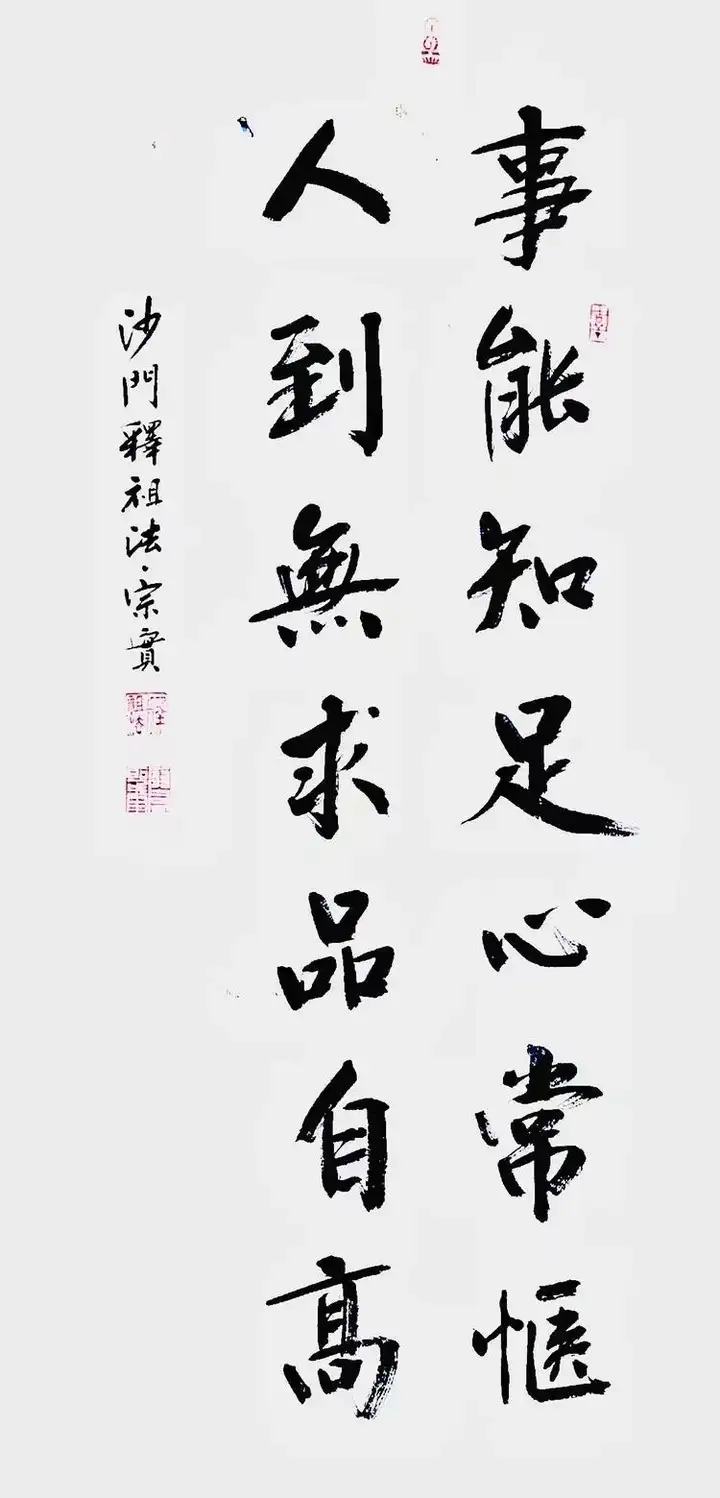 事能知足心常惬
人到無求品自高
沙門釋祖法·宗實